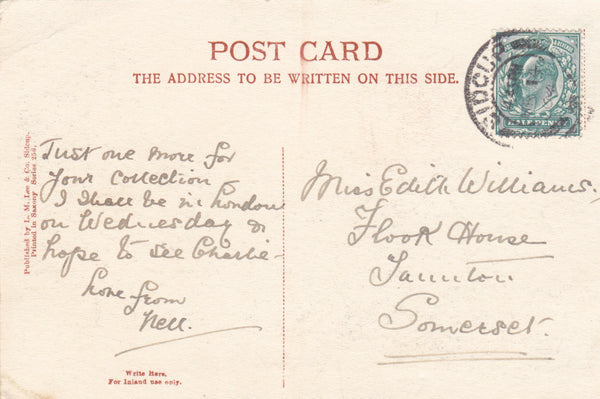 POST CARD
THE ADDRESS TO BE WRITTEN ON THIS SIDE.
SIDCUP
HALF PENNY
Published by L. M. Lee & Co. Sidcup.
Printed in Saxony Series 256.
Just one more for
your collection
I shall be in London
on Wednesday &
hope to see Charlie -
Love from
Nell.
Write Here.
For Inland use only.
Miss Edith Williams,
Flook House
Taunton
Somerset.